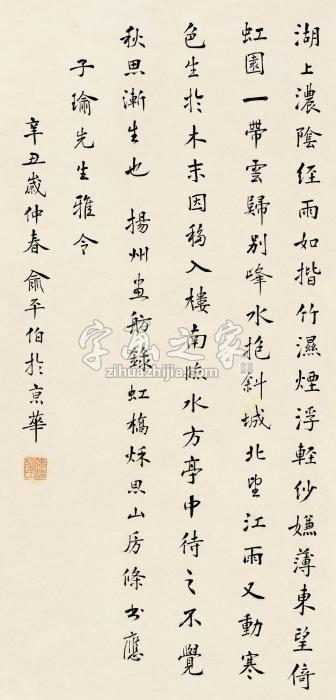 湖上濃陰経雨如揩竹濕煙浮輕紗嫌薄東望倚
虹園一帶雲歸别峰水抱斜城北望江雨又動寒
色生於木末因移入樓南臨水方亭中待之不覺
秋思漸生也 揚州画舫錄虹橋秌思山房條书應
子瑜先生雅令
辛丑歲仲春俞平伯於京華
字画之家
zihuazhijia.com